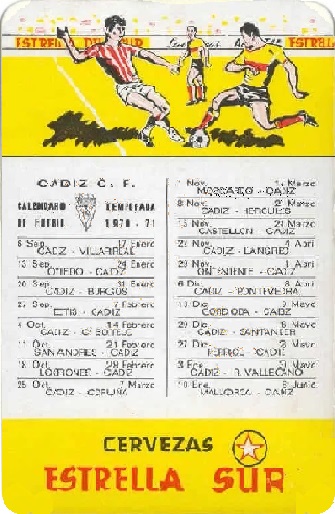 ESTRELLA DEL SUR
ESTRELLA
CADIZ C. F.
CALENDARIO TEMPORADA
DE FUTBOL 1970 - 71
6 Sep. 17 Enero
CADIZ - VILLARREAL
13 Sep. 24 Enero
OVIEDO - CADIZ
20 Sep. 31 Enero
CADIZ - BURGOS
27 Sep. 7 Febrero
BETIS - CADIZ
4 Oct. 14 Febrero
CADIZ -
11 Oct. 21 Febrero
SAN ANDRES - CADIZ
18 Oct. 28 Febrero
LOGROÑES - CADIZ
25 Oct. 7 Marzo
CADIZ - CORUÑA
1 Nov. Marzo
MOSCARDO - CADIZ
8 Nov. 21 Marzo
CADIZ - HERCULES
15 Nov. Marzo
CASTELLON - CADIZ
22 Nov. 4 Abril
CADIZ - LANGREO
29 Nov. Abril
ONTENIENTE - CADIZ
6 Dic. Abril
CADIZ - PONTEVEDRA
13 Dic. Mayo
CORDOBA - CADIZ
20 Dic. Mayo
CADIZ - SANTANDER
27 Dic. Mayo
FERROL - CADIZ
3 Ene. Mayo
CADIZ - R. VALLECANO
10 Ene. 6 Junio
MALLORCA - CADIZ
CERVEZAS
ESTRELLA SUR